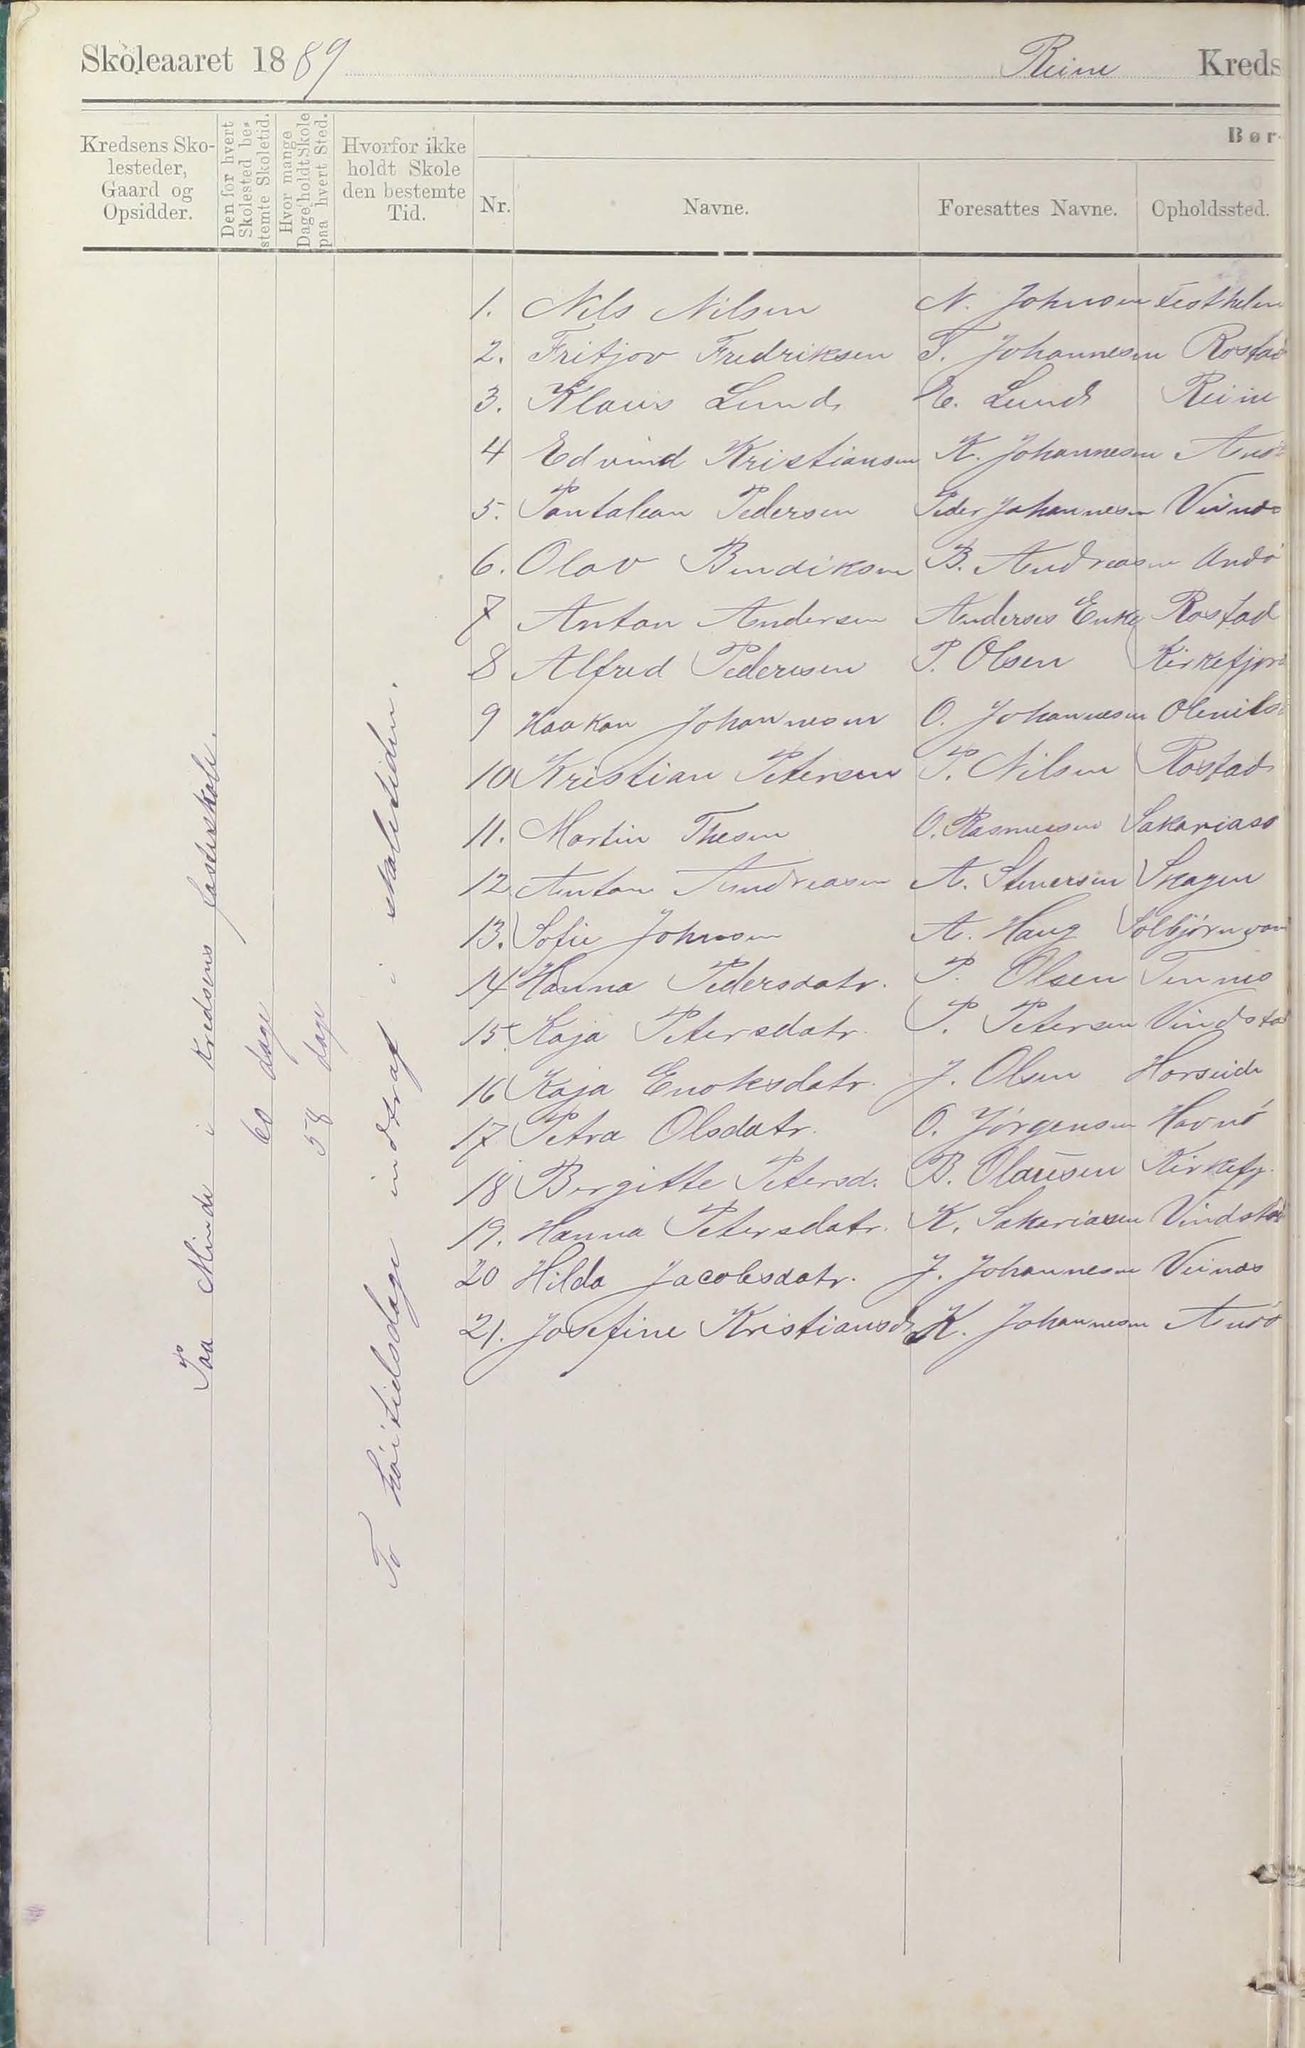 Skoleaaret 1889 Reine Kreds
Kredsens Sko-
lesteder,
Gaard og
Opsidder.
Den for hvert
Skolested be-
stemte Skoletid.
Hvor mange
Dage holdt Skole
paa hvert Sted.
Hvorfor ikke
holdt Skole
den bestemte
Tid.
Bør-
Nr. Navne. Foresattes Navne. Opholdssted.
Paa Minde i Kredsens fasteskole.
60 dage
58 dage
To høitidsdage indtraf i skoletiden.
1. Nils Nilsen N. Johnsen Festhelen
2. Fritjov Fredriksen F. Johannesen Rostad
3. Klaus Lund E. Lund Reine
4 Edvind Kristiansen K. Johannesen Andö
5. Pantalean Pedersen Peder Johannesen Veinæs
6. Olav Bendiksen B. Andreasen Andö
7 Anton Andersen Anderses Enke Rostad
8 Alfred Pedersen P. Olsen Kirkefjord
9 Haakon Johannesen O. Johannesen Olenils
10 Kristian Petersen P. Nilsen Rostad
11. Martin Thesen O. Rasmussen Sakariasö
12 Anton Andreasen A. Stenersen Skagen
13. Sofie Johnsen A. Haug Solbjörnvan
14 Hanna Pedersdatr. P. Olsen Tennes
15. Kaja Petersdatr. P. Petersen Vindstad
16 Kaja Enoksdatr. J. Olsen Horseide
17 Petra Olsdatr. O. Jörgensen Havnö
18 Bergitte Petersd. B. Olausen Kirkefj.
19. Hanna Petersdatr. K. Sakariasen Vindstad
20 Hilda Jacobsdatr. J. Johannesen Veinæs
21. Josefine Kristiansd. K. Johannesen Andö